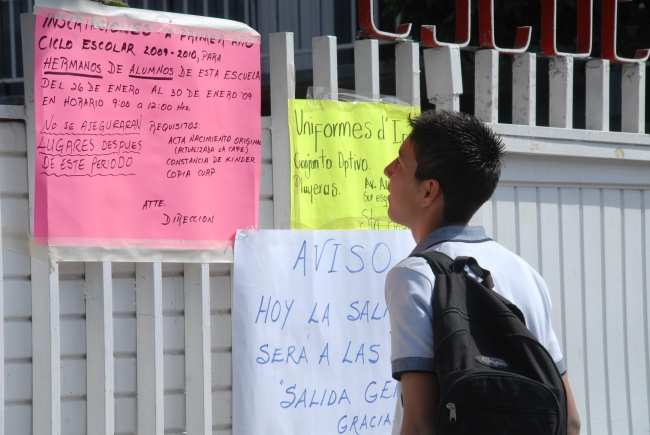 INSCRIPCIONES A PRIMER AÑO
CICLO ESCOLAR 2009-2010, PARA
HERMANOS DE ALUMNOS DE ESTA ESCUELA
DEL 26 DE ENERO AL 30 DE ENERO '09
EN HORARIO 9:00 A 12:00 Hrs.
NO SE ASEGURARAN
LUGARES DESPUES
DE ESTE PERIODO
REQUISITOS:
ACTA NACIMIENTO ORIGINAL
(ACTUALIZADA LA CAFE)
CONSTANCIA DE KINDER
COPIA CURP
ATTE.
DIRECCION
Uniformes d'
Conjunto Dptivo.
Playeras.
Av.
AVISO
HOY LA SAL
SERÁ A LAS
"SALIDA GE
GRACIA